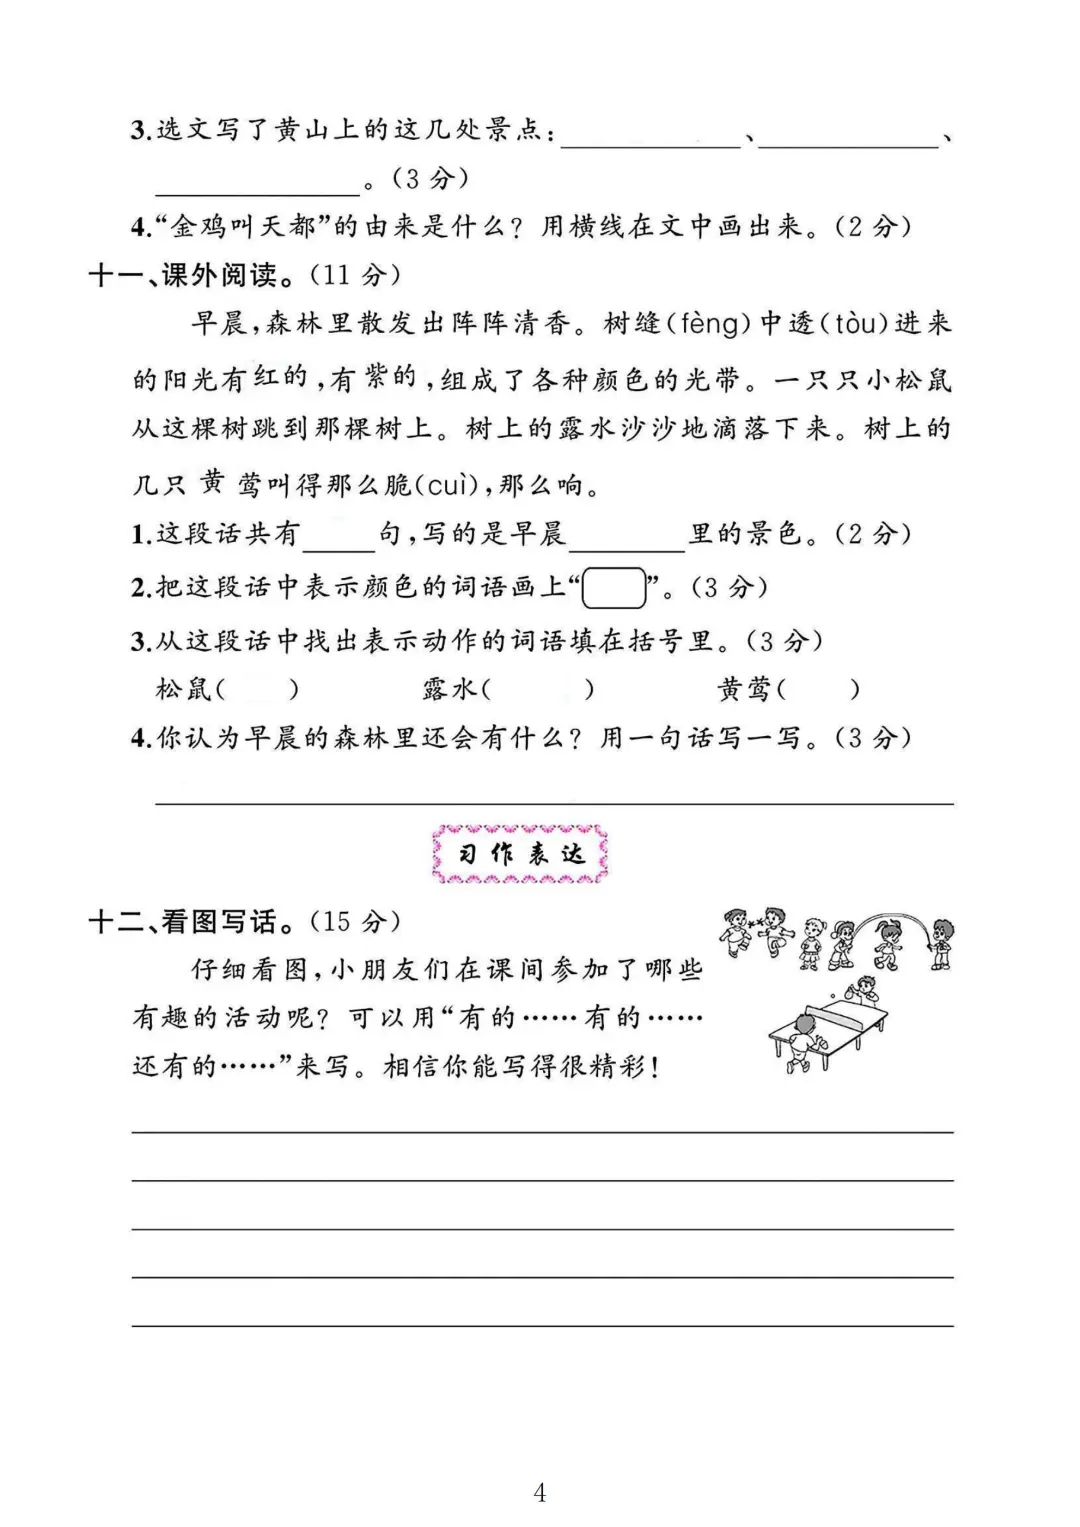 3.选文写了黄山上的这几处景点：____________、____________、
____________。（3 分）
4.“金鸡叫天都”的由来是什么？用横线在文中画出来。（2 分）
十一、课外阅读。（11 分）
早晨，森林里散发出阵阵清香。树缝（fèng）中透（tòu）进来
的阳光有红的，有紫的，组成了各种颜色的光带。一只只小松鼠
从这棵树跳到那棵树上。树上的露水沙沙地滴落下来。树上的
几只黄莺叫得那么脆（cuì），那么响。
1.这段话共有_____句，写的是早晨________里的景色。（2 分）
2.把这段话中表示颜色的词语画上“　　”。（3 分）
3.从这段话中找出表示动作的词语填在括号里。（3 分）
松鼠（　　） 露水（　　） 黄莺（　　）
4.你认为早晨的森林里还会有什么？用一句话写一写。（3 分）
习作表达
十二、看图写话。（15 分）
仔细看图，小朋友们在课间参加了哪些
有趣的活动呢？可以用“有的……有的……
还有的……”来写。相信你能写得很精彩！
4